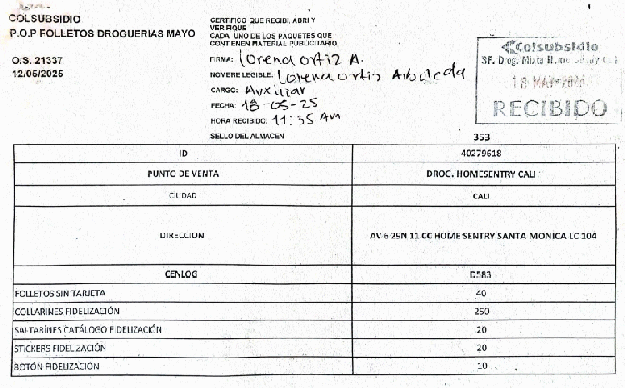 COLSUBSIDIO
P.O.P FOLLETOS DROGUERIAS MAYO
O.S. 21337
12/05/2025
CERTIFICO QUE RECIBI, ABRI Y
VERIFIQUE
CADA UNO DE LOS PAQUETES QUE
CONTIENEN MATERIAL PUBLICITARIO
FIRMA: Lorena ortiz A.
NOMBRE LEGIBLE: Lorena ortiz Arboleda
CARGO: Auxiliar
FECHA: 18-05-25
HORA RECIBIDO: 11:35 Am
SELLO DEL ALMACEN
Colsubsidio
SF. Drog. Mixta
18 MAY
RECIBIDO
353
ID 40279618
PUNTO DE VENTA DROG. HOMESENTRY CALI
CIUDAD CALI
DIRECCION AV 6 25N 11 CC HOME SENTRY SANTA MONICA LC 104
CENLOG D583
FOLLETOS SIN TARJETA 40
COLLARINES FIDELIZACIÓN 250
SALTARINES CATÁLOGO FIDELIZACIÓN 20
STICKERS FIDELIZACIÓN 20
BOTÓN FIDELIZACION 10